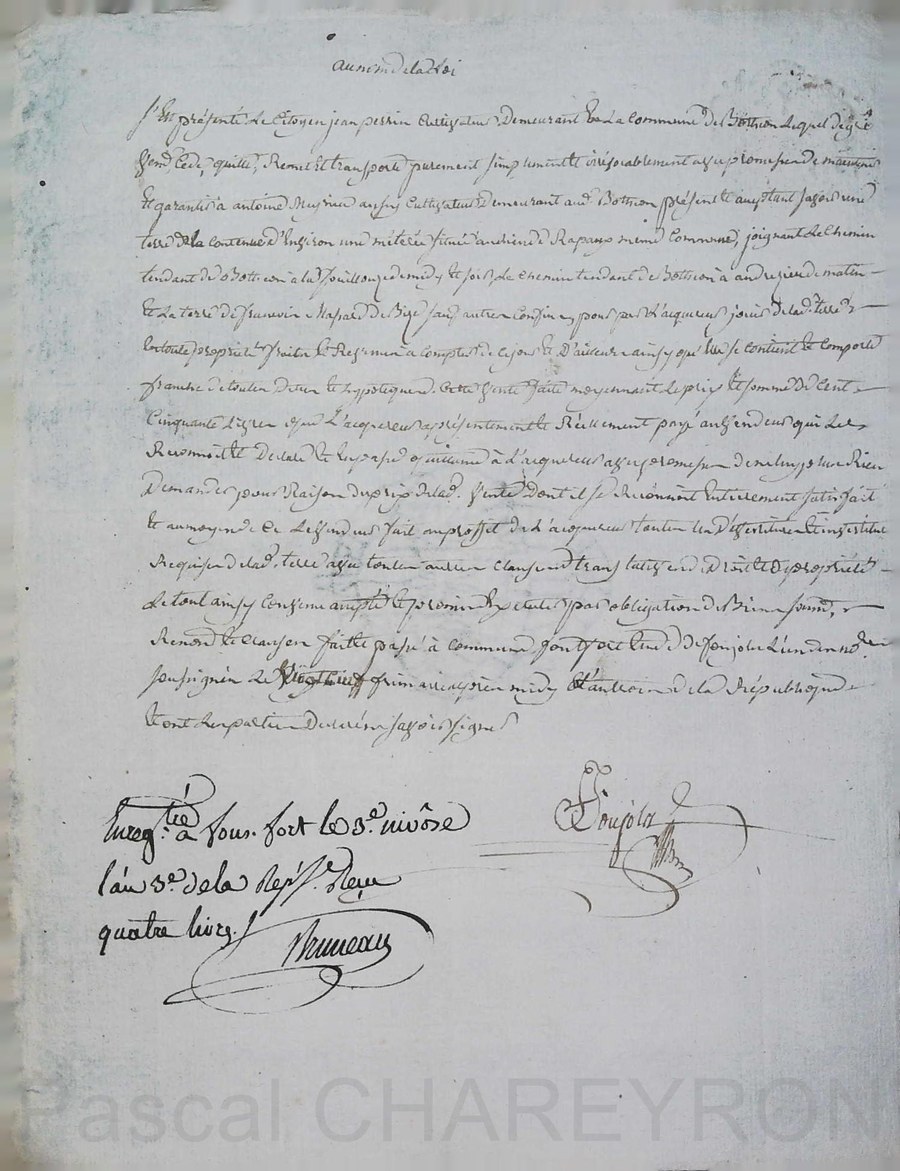 au nom de la Loi
S'est présenté Le Citoyen jean perrin Cultivateur Demeurant En La Commune de Botheon Lequel de gré
Vend, Cede, quitte, Remet Et transporte purement simplement Et irrévocablement avec promesse de maintenir
Et garantir a antoine Meyrieu aussy Cultivateur demeurant aud. Botheon présent Et acceptant savoir une
terre de la contenue d'Environ une méterée située au lieu de Rapaux meme Commune, joignant Le Chemin
tendant de Botheon à la fouillouze de midy Et soir La Chemin tendant de Botheon à andrezieu de matin
Et La terre de francois de Bize sauf autres Confins, pour par L'acquereur jouir de lad. terre
En toute propriété fruits Et Revenus a Compter de Ce jour Et D'ailleurs ainsy qu'Elle se contient Et comporte
franche de toutes dettes Et hypoteques. Cette Vente faite moyennant Le prix Et somme De Cent
Cinquante Livres que L'acquereur a présentement Et Réellement payé au Vendeur qui Les
Reconnoit Et Declare Et En passe quittance à L'acquereur avec promesse de ne luy plus Rien
Demander pour Raison du prix de lad. Vente Dont il se Reconnoit Entierement satisfait
Et au moyen de Ce Le Vendeur fait au proffit de L'acquereur toutes les Devestitures Et investitures
Requises de lad. terre avec toutes autres Clauses translatives de Droit Et de propriété
Le tout ainsy Convenu accepté Et promis Executer par obligation de Biens soumis,
Renonc. Et Clauses fait Et passé à commune fontfort Etude de Ponjola L'un des no.res
soussignés Le frimaire après midy L'an trois de la République
Et ont Les parties De savoir signer
Enreg.tré a fons-fort le 3.e nivôse
l'an 3.e de la Rep.e Reçu
quatre livres
Bruneau
Ponjola
Pascal CHAREYRON